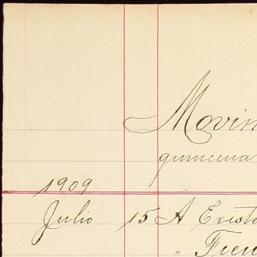 Movim
quincena
1909
Julio 15 A Existe
" Tien